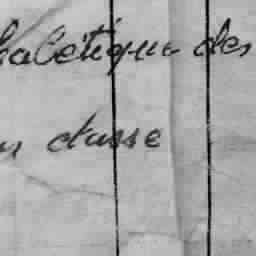 habétique des
classe